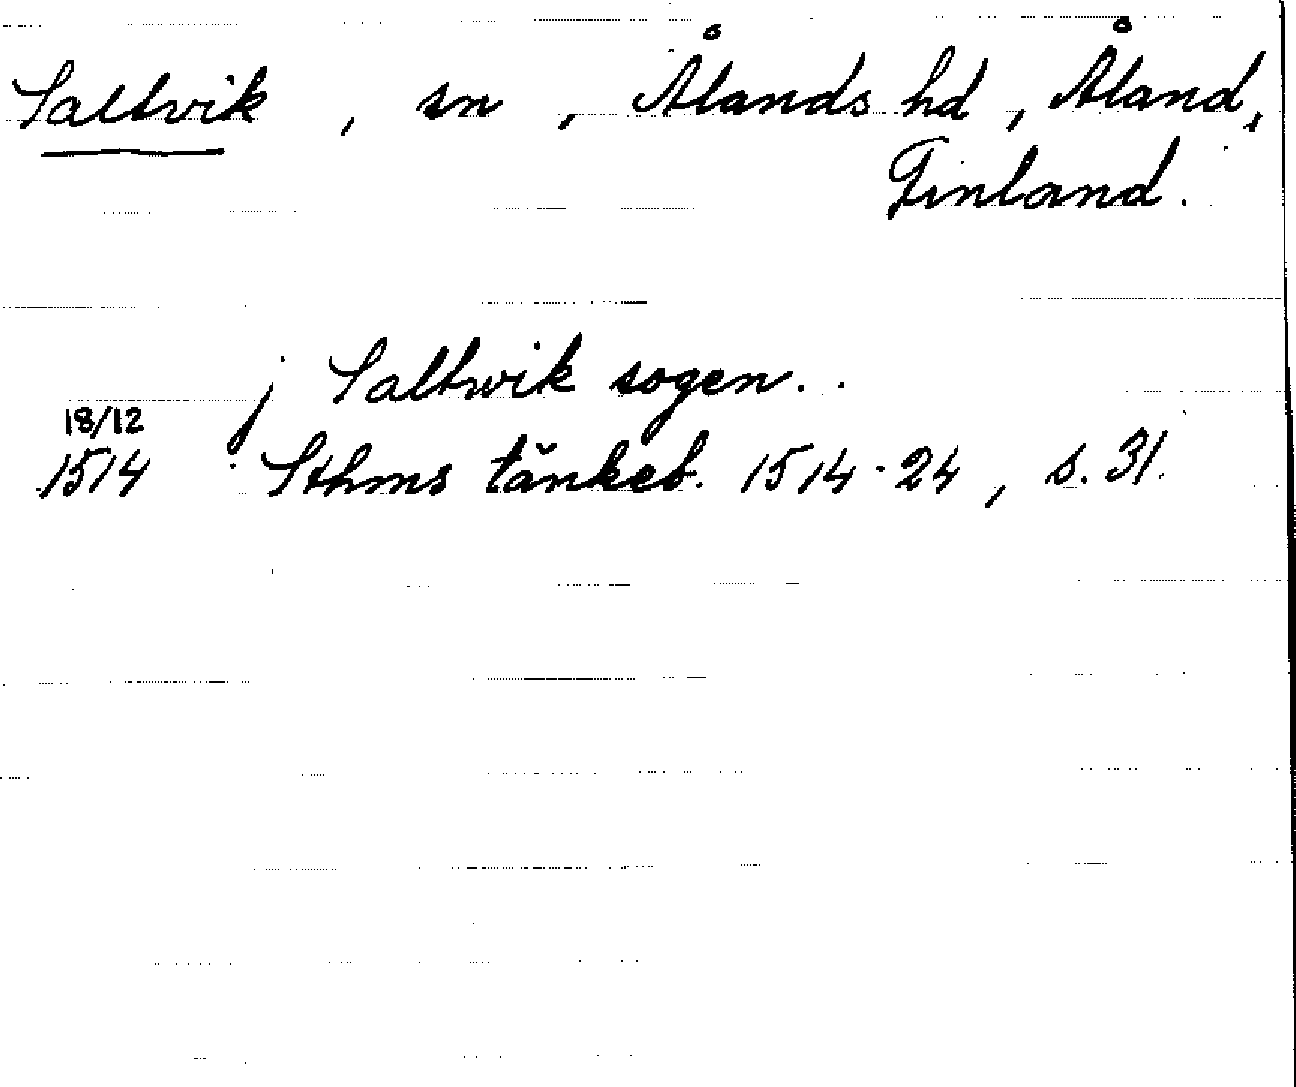 Saltvik, sn, Ålands hd, Åland,
Finland.
j Saltwik sogen.
18/12
1514 Sthms tänkeb. 1514-24, s. 31.